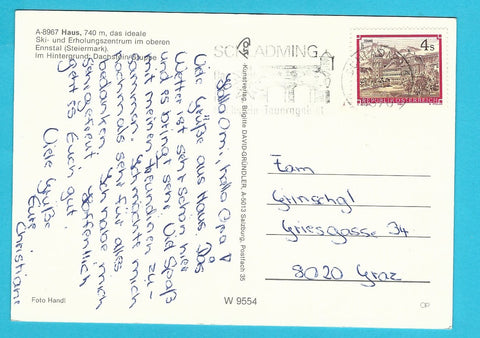 A-8967 Haus, 740 m, das ideale
Ski- und Erholungszentrum im oberen
Ennstal (Steiermark).
Im Hintergrund: Dachsteingruppe
Hallo Omi, hallo Opa!
Viele Grüße aus Haus. Das
Wetter ist sehr schön hier
und es bringt sehr viel Spaß
mit meinen Freundinnen zu-
sammen. Ich möchte mich
nochmals sehr für alles
bedanken. Ich habe mich
gefreut. Hoffentlich
geht es Euch gut.
Viele Grüße
Eure
Christiane
Foto Handl
Kunstverlag, Brigitte DAVID-GRÜNDLER, A-5013 Salzburg, Postfach 35
W 9554
SCHLADMING
4 S
REPUBLIK ÖSTERREICH
Fam
Grinschgl
Griesgasse 34
8020 Graz